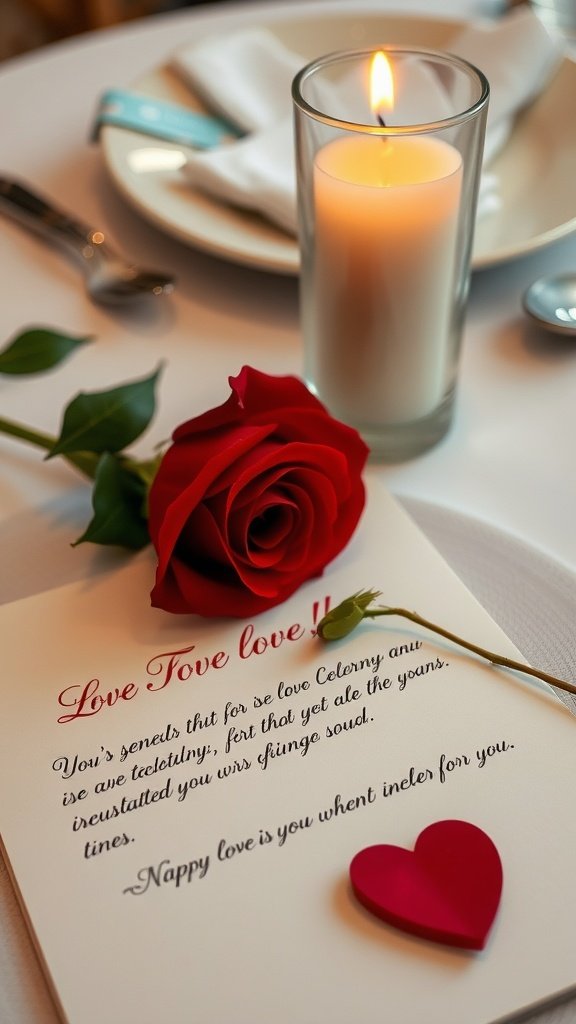 Love Fove love !!
You's geneds thit for ise love Celerny and
ise ave teeletdlny:, fort that yet ale the yoans.
ireustatted you wirs efiunge soud.
tines.
~Nappy love is you whent incler forr you.